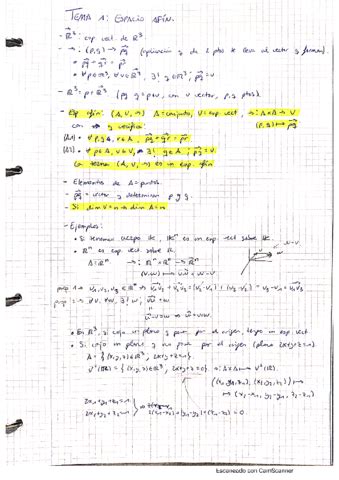 TEMA 1: ESPACIO AFÍN.
- ℝ³: esp vect. de ℝ³.
- →: (p,q) → p⃗q (aplicación q de 2 ptos te lleva al vector q forman).
• p⃗q + q⃗r = p⃗r
• ∀p∈ℝ³, ∀v∈ℝ³, ∃! q∈ℝ³; p⃗q = v
- ℝ³: p∈ℝ³ (pq q = p+v, con v vector, p,q ptos).
- Esp. afín: (A, V, →) A = conjunto, V = esp. vect., →: A×A → V
con → q verifica: (p,q) ↦ p⃗q
(A1) • ∀ p,q,r ∈ A, p⃗q + q⃗r = p⃗r
(A2) • ∀ p∈A, v∈V, ∃! q∈A; p⃗q = v
La terna (A, V, →) es un esp. afín
- Elementos de A = puntos.
- p⃗q = vector q determinan p y q.
- Si dim V = n → dim A = n
- Ejemplos:
• Si tenemos cuerpo K, Kⁿ es un esp. vect sobre K.
• ℝⁿ es esp vect. sobre ℝ.
A = ℝⁿ →: ℝⁿ×ℝⁿ → ℝⁿ
prop 1 → v₁, v₂, v₃ ∈ ℝⁿ ⇒ v₁v₂ + v₂v₃ = (v₂-v₁) + (v₃-v₂) = v₃-v₁ = v₁v₃
• En ℝ³, si cojo un plano q pasa por el origen, tengo un esp. vect.
• Si cojo un plano q no pasa por el origen (plano 2x+y+z=1)
A = {(x,y,z)∈ℝ³, 2x+y+z=1}
= {(x,y,z)∈ℝ³, 2x+y+z=0}
2x₁+y₁+z₁=1
2x₂+y₂+z₂=1
Escaneado con CamScanner